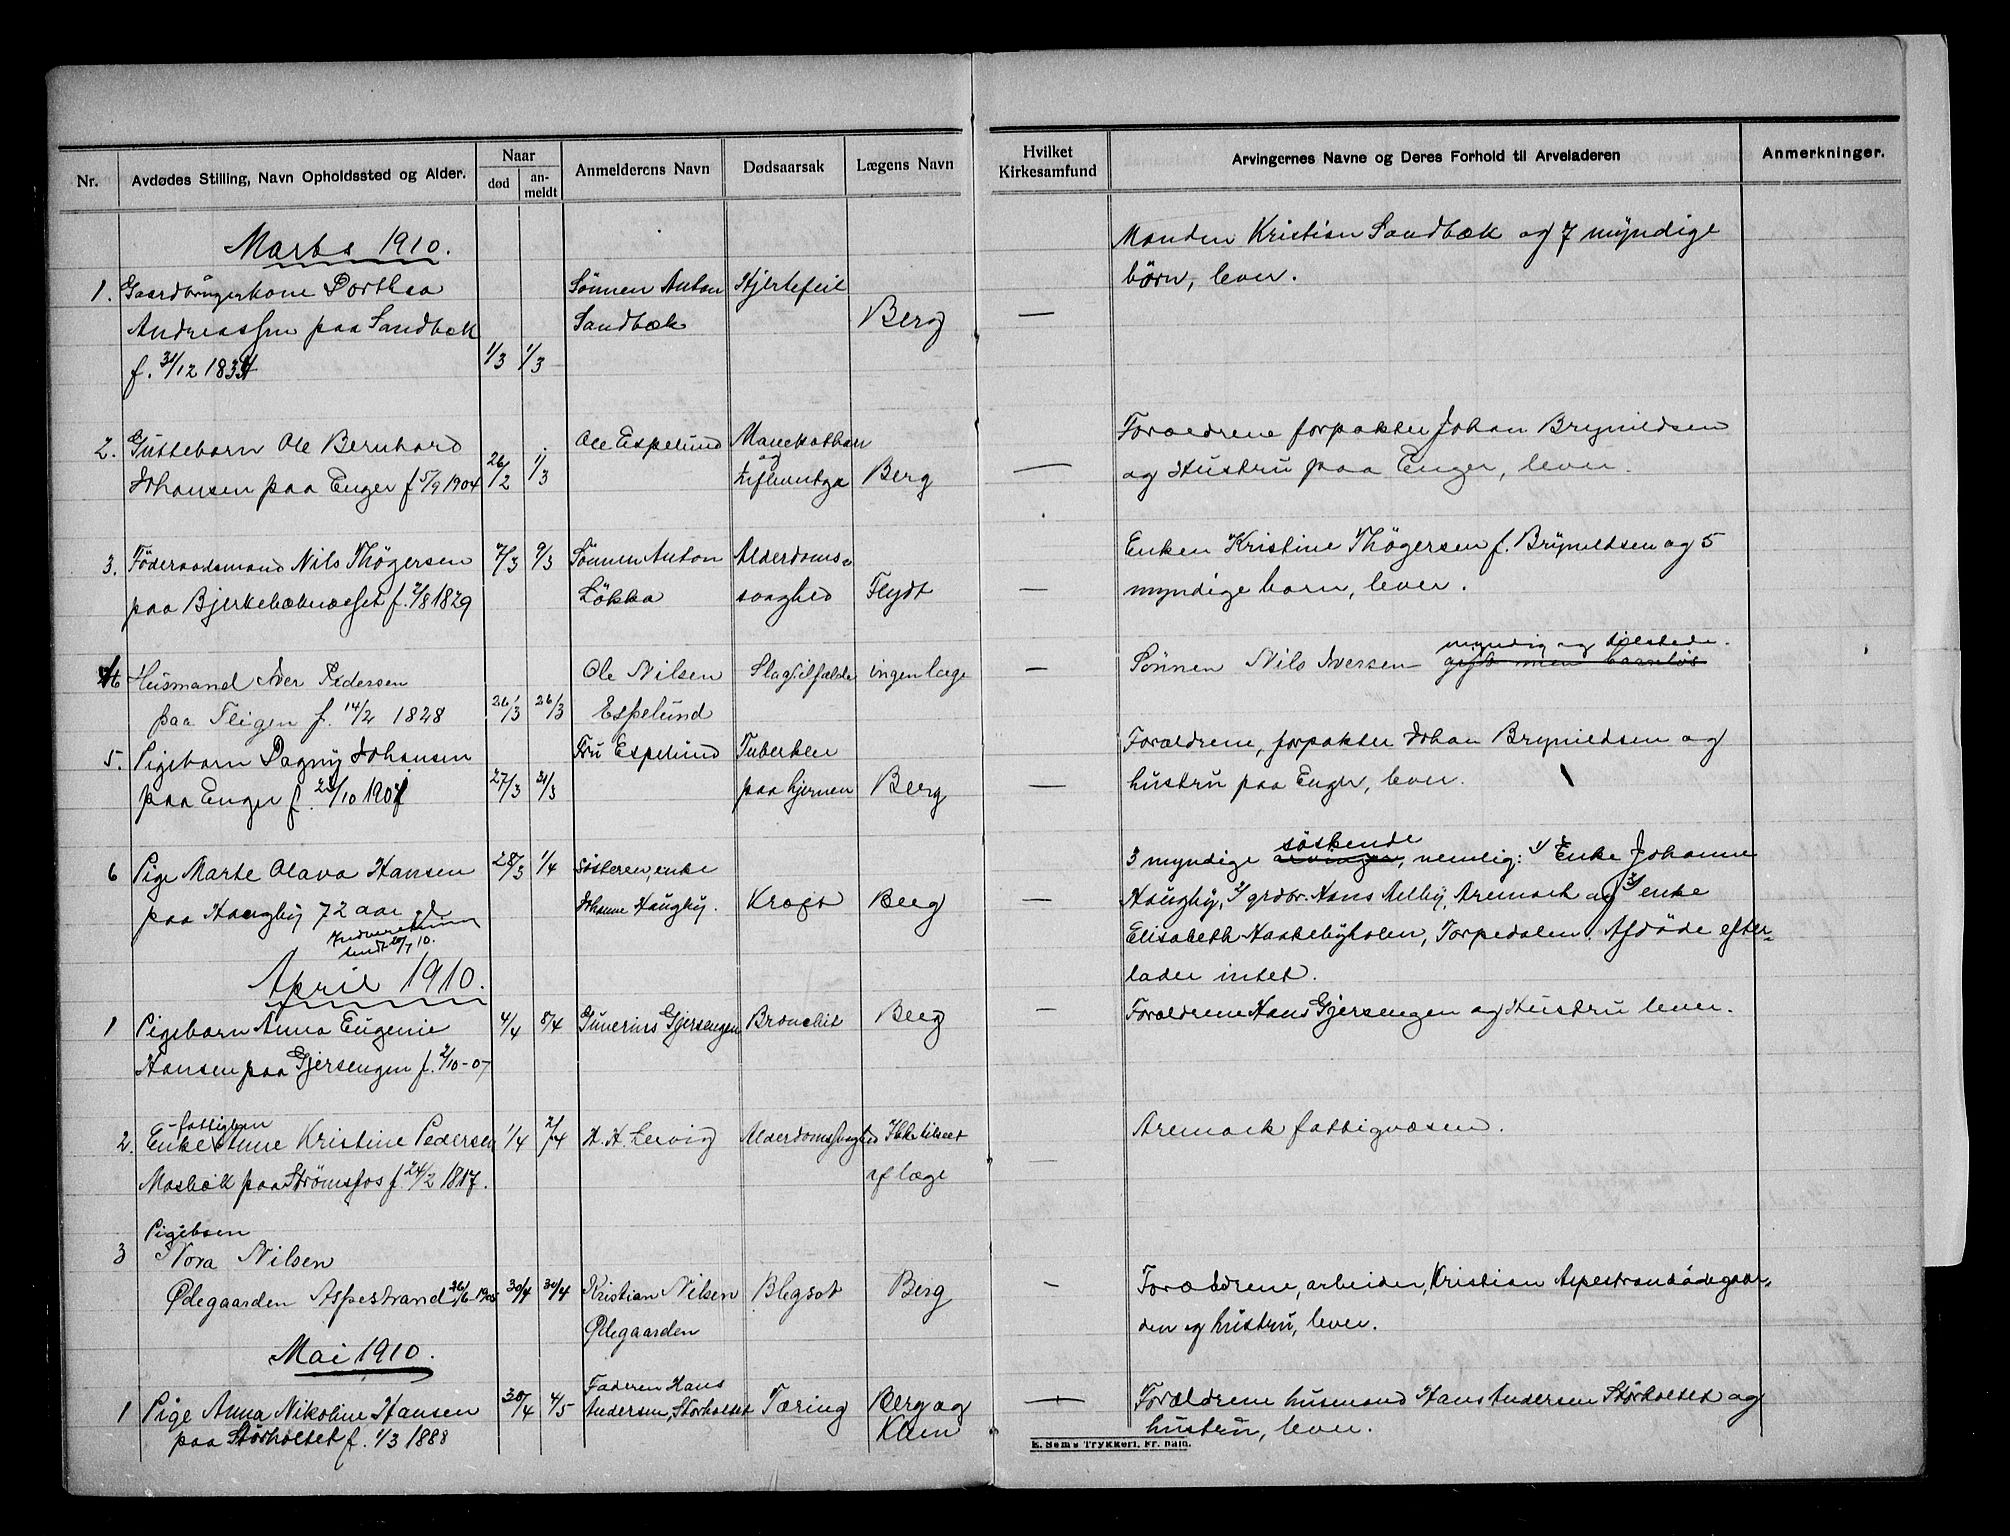 Nr.
Avdødes Stilling, Navn Opholdssted og Alder.
Naar
død
an-
meldt
Anmelderens Navn
Dødsaarsak
Lægens Navn
Hvilket
Kirkesamfund
Arvingernes Navne og Deres Forhold til Arveladeren
Anmerkninger.
Marts 1910.
1. Gaardbrugerkone Dorthea
Andreassen paa Sandbæk
f. 31/12 1834
1/3 1/3
Sönnen Anton
Sandbæk
Hjertefeil
Berg
—
Manden Kristian Sandbæk og 7 myndige
börn, lever.
2. Guttebarn Ole Bernhard
Johansen paa Enger f 5/9 1904
26/2 1/3
Ole Espelund
Mavekathar
og
Berg
—
Forældrene forpakter Johan Brynildsen
og Hustru paa Enger, lever.
3. Föderaadsmand Nils Thögersen
paa Bjerkebæknæsset f. 2/8 1829
7/3 9/3
Sönnen Anton
Lökka
Alderdoms-
svaghed
Flydt
—
Enken Kristine Thögersen f. Brynildsen og 5
myndige barn, lever.
4 Husmand Iver Pedersen
paa Fligen f. 14/2 1828
26/3 26/3
Ole Nilsen
Espelund
Slagtilfælde
ingen læge
—
myndig og tilstede.
Sönnen Nils Iversen gift men barnløs
5. Pigebarn Dagny Johansen
paa Enger f. 23/10 1907
27/3 31/3
Fru Espelund
Tuberkler
paa hjernen
Berg
—
Forældrene, forpakter Johan Brynildsen og
hustru paa Enger, lever.
6 Pige Marte Olava Hansen
paa Haugby 72 aar gl
Indberetning
sendt 20/7 10.
28/3 1/4
Søsteren, enke
Johanne Haugby.
Kræft
Berg
—
søskende
3 myndige arvinger, nemlig: 1/ Enke Johanne
Haugby, 2/ grdbr. Hans Aelby, Aremark og 3/ enke
Elisabeth Haakebyholen, Torpedalen. Afdöde efter-
lader intet.
April 1910.
1 Pigebarn Anna Eugenie
Hansen paa Gjersengen f. 2/10-07
4/4 5/4
Gunerius Gjersengen
Bronchit
Berg
—
Forældrene Hans Gjersengen og Hustru lever.
fattiglem
2. Enke Anne Kristine Pedersen
Mosbæk paa Strømsfos f. 24/2 1817.
1/4 2/4
H. H. Lervig
Alderdomssvaghed
Ikke tilseet
af læge
—
Aremark fattigvæsen.
Pigebarn
3 Nora Nilsen
Ødegaarden Aspestrand 26/6 1905
30/4 30/4
Kristian Nilsen
Ødegaarden
Blegsot
Berg
-
Forældrene, arbeider, Kristian Aspestrandödegaar-
den og hustru, lever.
Mai 1910.
1 Pige Anna Nikoline Hansen
paa Storholtet f. 1/3 1888
30/4 4/5
Faderen Hans
Andersen, Storholtet
Tæring
Berg og
—
Forældrene husmand Hans Andersen Storholtet og
hustru, lever.
E. Sems Trykkeri, Fr. hald.